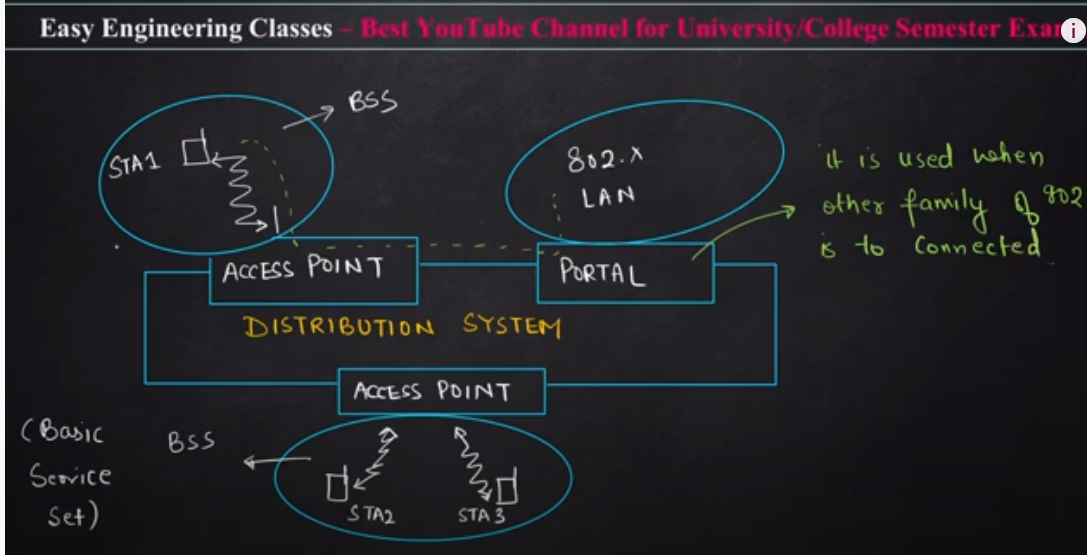 Easy Engineering Classes – Best YouTube Channel for University/College Semester Exa
i
BSS
STA1
802.x
LAN
it is used when
other family of 802
is to connected
ACCESS POINT
PORTAL
DISTRIBUTION SYSTEM
ACCESS POINT
(Basic
Service
Set)
BSS
STA2
STA3